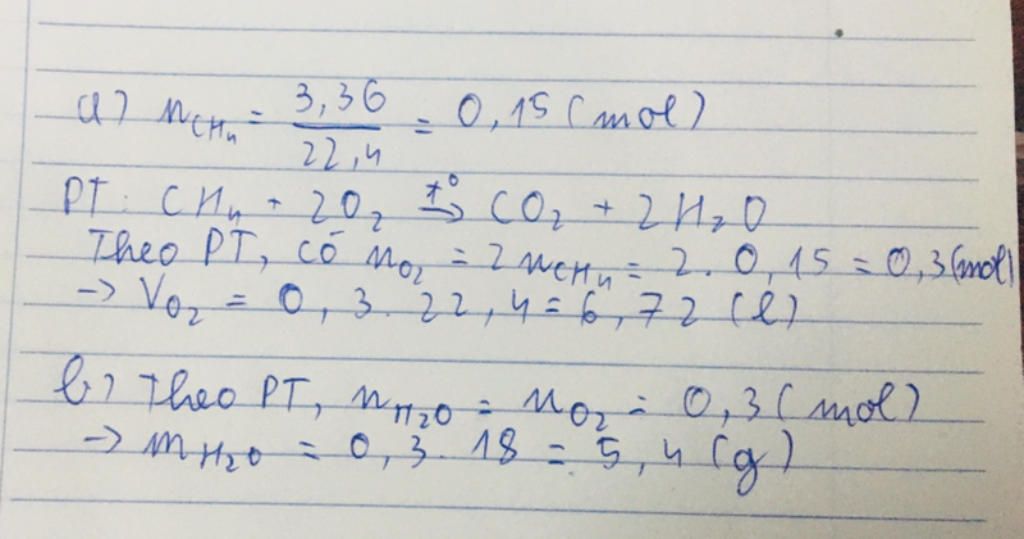 a) nCH₄ = 3,36 / 22,4 = 0,15 (mol)
PT: CH₄ + 2O₂ t°→ CO₂ + 2H₂O
Theo PT, có nO₂ = 2nCH₄ = 2. 0,15 = 0,3(mol)
→ VO₂ = 0,3. 22,4 = 6,72 (l)
b) Theo PT, nH₂O = nO₂ = 0,3 (mol)
→ mH₂O = 0,3. 18 = 5,4 (g)